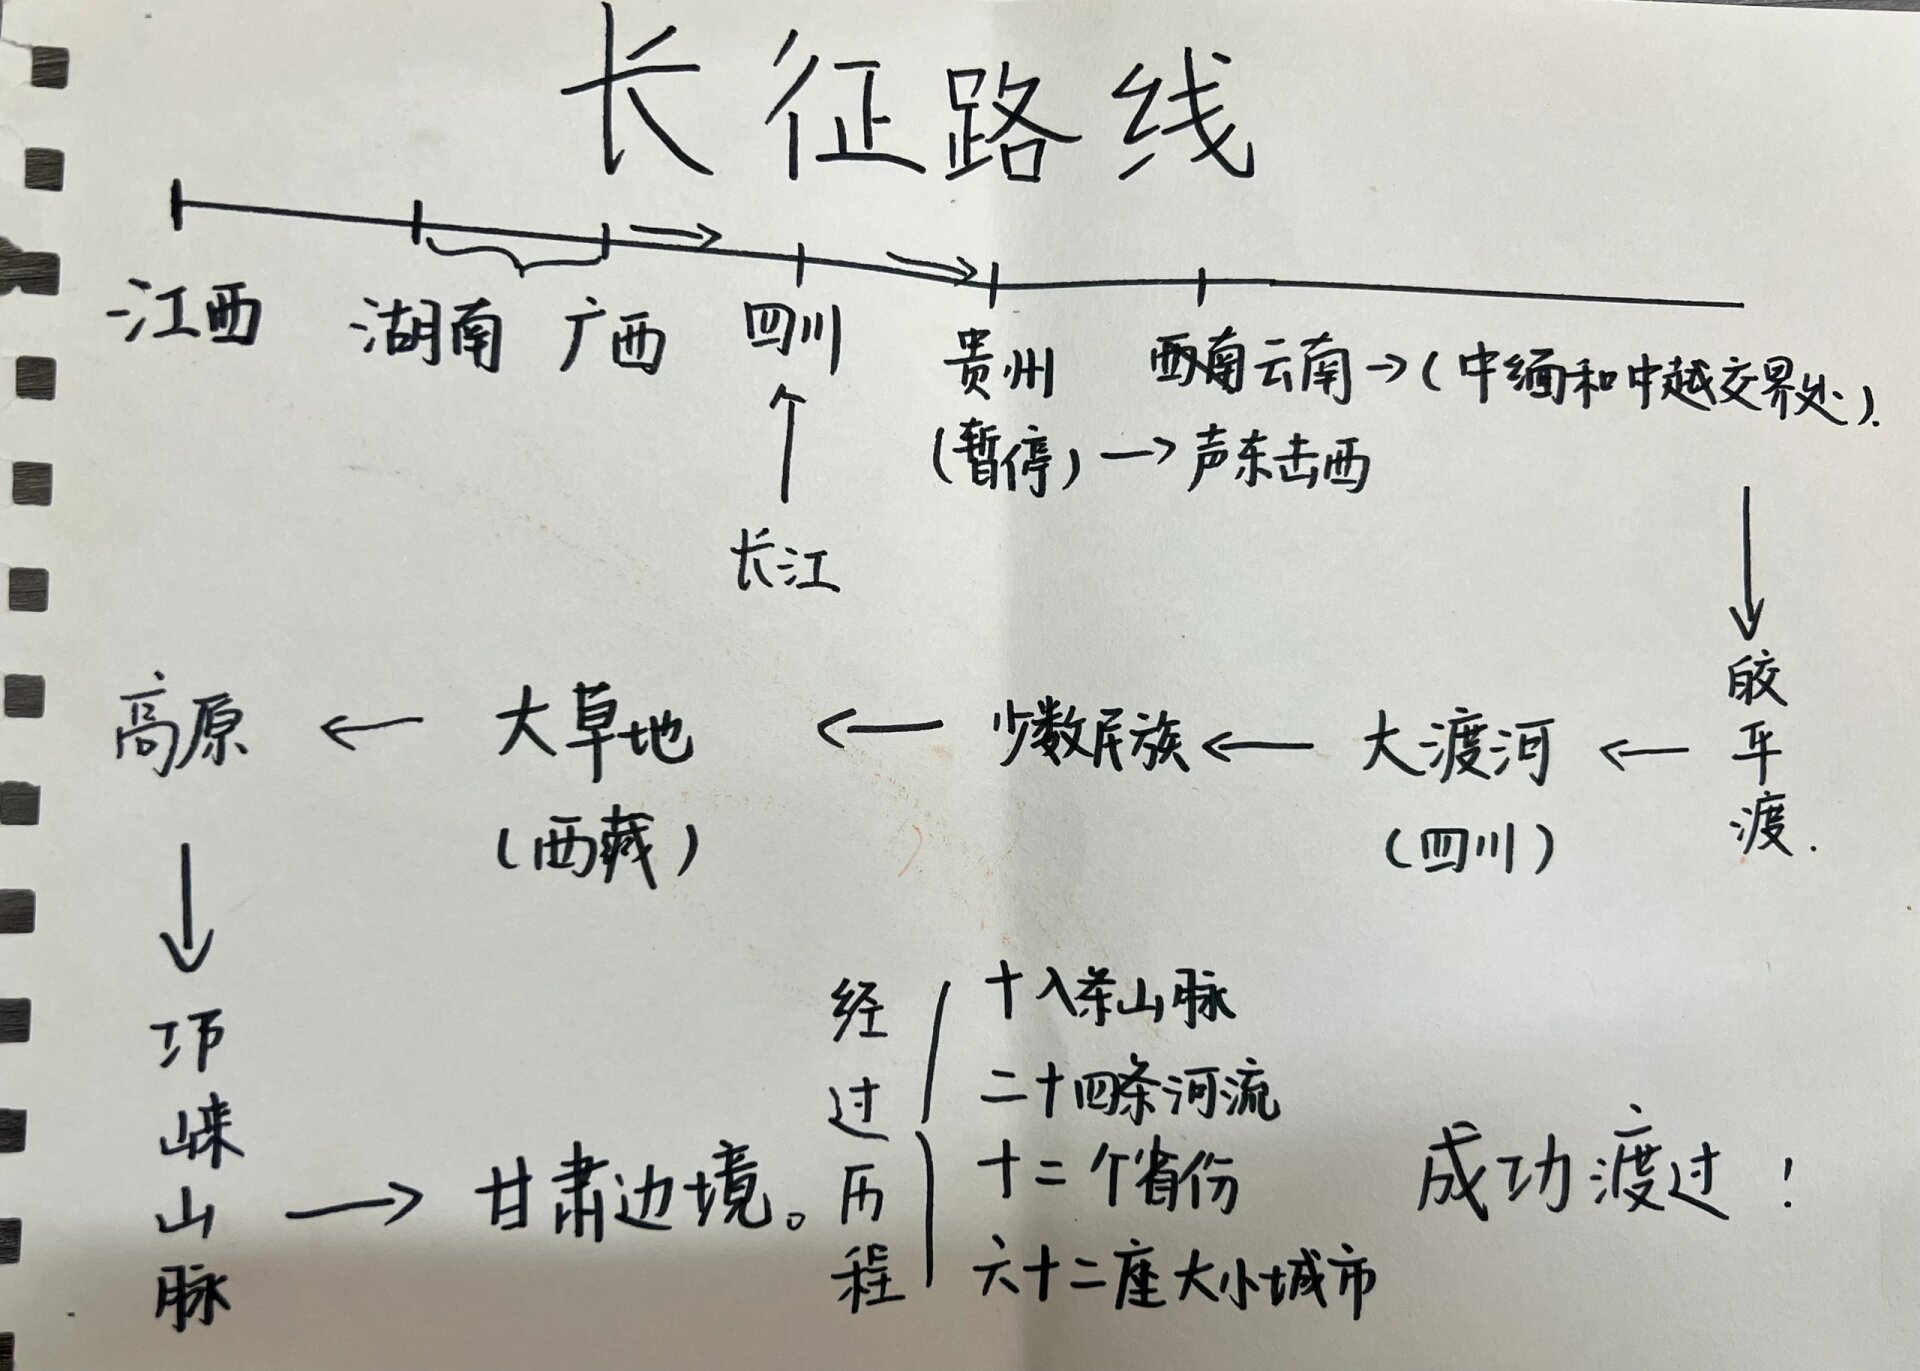 长征路线
江西 湖南 广西 四川 贵州 西南云南→(中缅和中越交界处).
(暂停)→声东击西
长江
皎平渡.
高原 ← 大草地 ← 少数民族 ← 大渡河 ←
(西藏) (四川)
邛崃山脉 → 甘肃边境。
经过历程
十八条山脉
二十四条河流
十二个省份
六十二座大小城市
成功渡过!